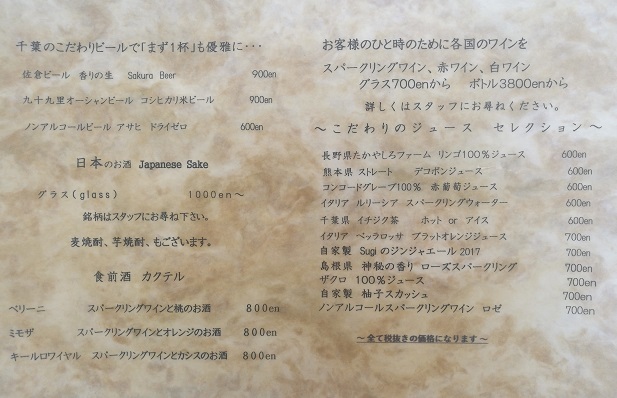 千葉のこだわりビールで「まず1杯」も優雅に・・・
佐倉ビール 香りの生 Sakura Beer 900en
九十九里オーシャンビール コシヒカリ米ビール 900en
ノンアルコールビール アサヒ ドライゼロ 600en
日本のお酒 Japanese Sake
グラス(glass) 1000en～
銘柄はスタッフにお尋ね下さい。
麦焼酎、芋焼酎、もございます。
食前酒 カクテル
ベリーニ スパークリングワインと桃のお酒 800en
ミモザ スパークリングワインとオレンジのお酒 800en
キールロワイヤル スパークリングワインとカシスのお酒 800en
お客様のひと時のために各国のワインを
スパークリングワイン、赤ワイン、白ワイン
グラス700enから ボトル3800enから
詳しくはスタッフにお尋ねください。
～こだわりのジュース セレクション～
長野県たかやしろファーム リンゴ100%ジュース 600en
熊本県 ストレート デコポンジュース 600en
コンコードグレープ100% 赤葡萄ジュース 600en
イタリア ルリーシア スパークリングウォーター 600en
千葉県 イチジク茶 ホット or アイス 600en
イタリア ベッラロッサ ブラットオレンジジュース 700en
自家製 Sugiのジンジャエール2017 700en
島根県 神秘の香り ローズスパークリング 700en
ザクロ 100%ジュース 700en
自家製 柚子スカッシュ 700en
ノンアルコールスパークリングワイン ロゼ 700en
～全て税抜きの価格になります～